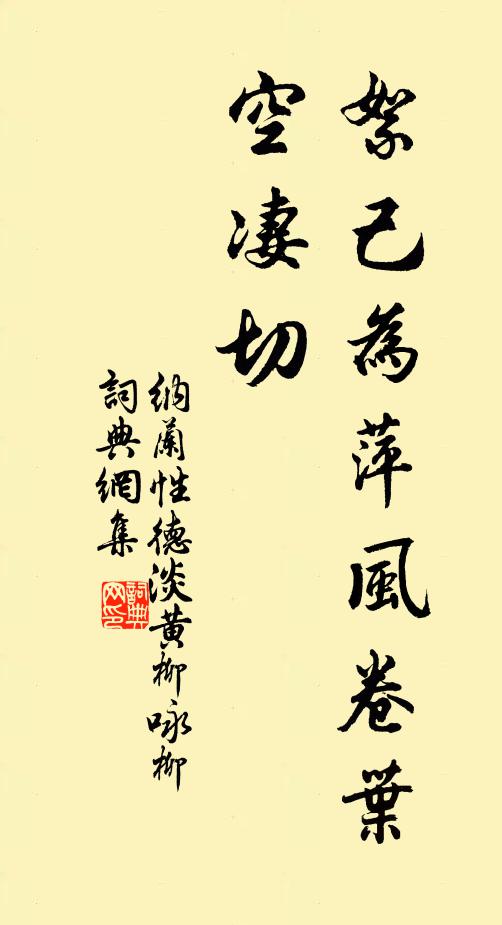 絮已為萍風卷葉
空凄切
納蘭性德淡黄柳咏柳
詞典網集
詞典網印